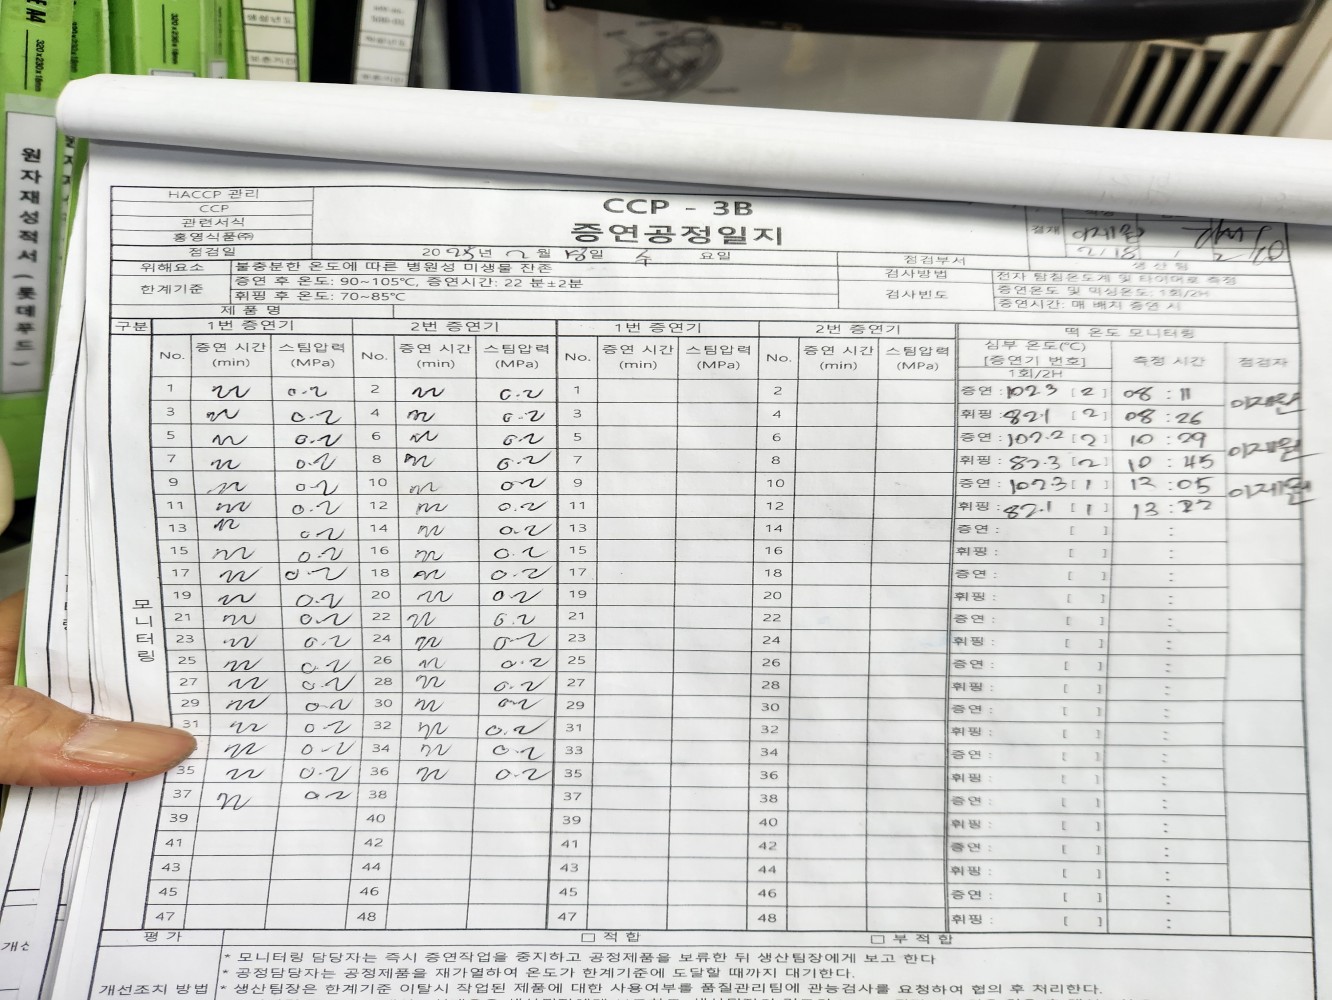 320x230x18mm
320x230x18mm
원자재성적서(롯데푸드)
HACCP 관리
CCP
관련서식
홍영식품㈜
CCP - 3B
증연공정일지
결재 이제원
2/18
점검일 2025년 2월 일 수 요일 점검부서 생산팀
위해요소 불충분한 온도에 따른 병원성 미생물 잔존 검사방법 전자 탐침온도계 및 타이머로 측정
한계기준 증연 후 온도: 90~105℃, 증연시간: 22 분±2분 검사빈도 증연온도 및 믹싱온도: 1회/2H
휘핑 후 온도: 70~85℃ 증연시간: 매 배치 증연 시
제 품 명
구분 1번 증연기 2번 증연기 1번 증연기 2번 증연기 떡 온도 모니터링
No. 증연 시간 (min) 스팀압력 (MPa) No. 증연 시간 (min) 스팀압력 (MPa) No. 증연 시간 (min) 스팀압력 (MPa) No. 증연 시간 (min) 스팀압력 (MPa) 심부 온도(℃) [증연기 번호] 1회/2H 측정 시간 점검자
모니터링
1 22 0.2 2 22 0.2 1 2 증연 : 102.3 [ 2 ] 08 : 11 이제원
3 22 0.2 4 22 0.2 3 4 휘핑 : 82.1 [ 2 ] 08 : 26
5 22 0.2 6 22 0.2 5 6 증연 : 102.2 [ 2 ] 10 : 29 이제원
7 22 0.2 8 22 0.2 7 8 휘핑 : 82.3 [ 2 ] 10 : 45
9 22 0.2 10 22 0.2 9 10 증연 : 102.3 [ 1 ] 13 : 05 이제원
11 22 0.2 12 22 0.2 11 12 휘핑 : 82.1 [ 1 ] 13 : 22
13 22 0.2 14 22 0.2 13 14 증연 : [ ] :
15 22 0.2 16 22 0.2 15 16 휘핑 : [ ] :
17 22 0.2 18 22 0.2 17 18 증연 : [ ] :
19 22 0.2 20 22 0.2 19 20 휘핑 : [ ] :
21 22 0.2 22 22 0.2 21 22 증연 : [ ] :
23 22 0.2 24 22 0.2 23 24 휘핑 : [ ] :
25 22 0.2 26 22 0.2 25 26 증연 : [ ] :
27 22 0.2 28 22 0.2 27 28 휘핑 : [ ] :
29 22 0.2 30 22 0.2 29 30 증연 : [ ] :
31 22 0.2 32 22 0.2 31 32 휘핑 : [ ] :
22 0.2 34 22 0.2 33 34 증연 : [ ] :
35 22 0.2 36 22 0.2 35 36 휘핑 : [ ] :
37 22 0.2 38 37 38 증연 : [ ] :
39 40 39 40 휘핑 : [ ] :
41 42 41 42 증연 : [ ] :
43 44 43 44 휘핑 : [ ] :
45 46 45 46 증연 : [ ] :
47 48 47 48 휘핑 : [ ] :
평 가 □ 적 합 □ 부 적 합
개선조치 방법
* 모니터링 담당자는 즉시 증연작업을 중지하고 공정제품을 보류한 뒤 생산팀장에게 보고 한다
* 공정담당자는 공정제품을 재가열하여 온도가 한계기준에 도달할 때까지 대기한다.
* 생산팀장은 한계기준 이탈시 작업된 제품에 대한 사용여부를 품질관리팀에 관능검사를 요청하여 협의 후 처리한다.